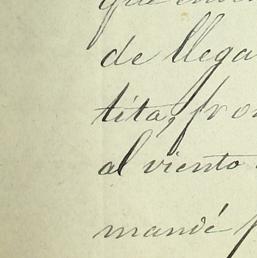 que
de llega
tita, fro
al viento
mandé